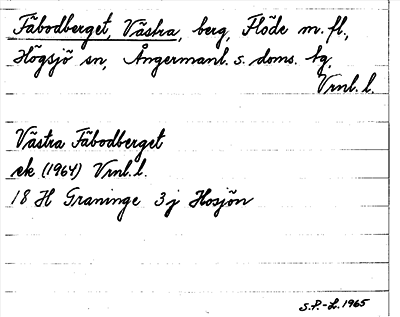 Fäbodberget, Västra, berg, Flöde m. fl.,
Högsjö sn, Ångermanl. s. doms. tg,
Vrnl. l.
Västra Fäbodberget
ek (1964) Vrnl. l.
18 H Graninge 3 j Hosjön
S.P.-L. 1965